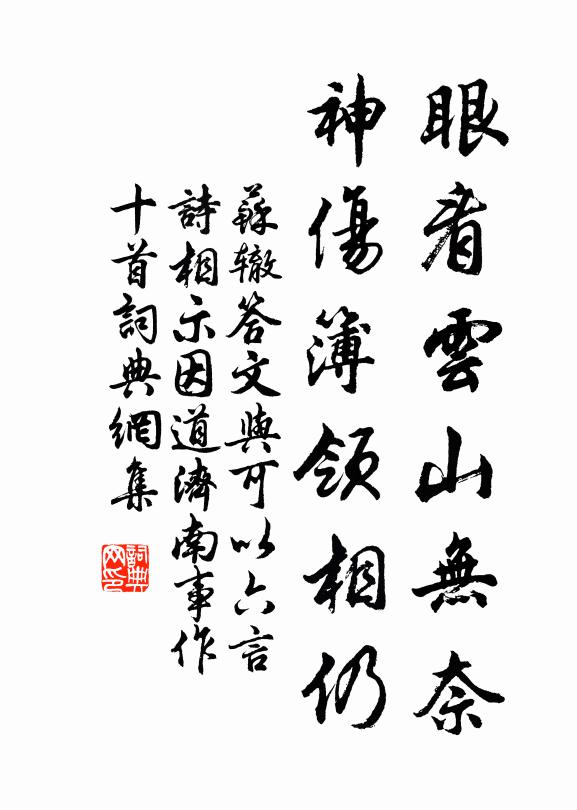 眼看雲山無奈
神傷簿領相仍
蘇辙答文與可以六言
詩相示因道濟南事作
十首詞典網集
詞典网印